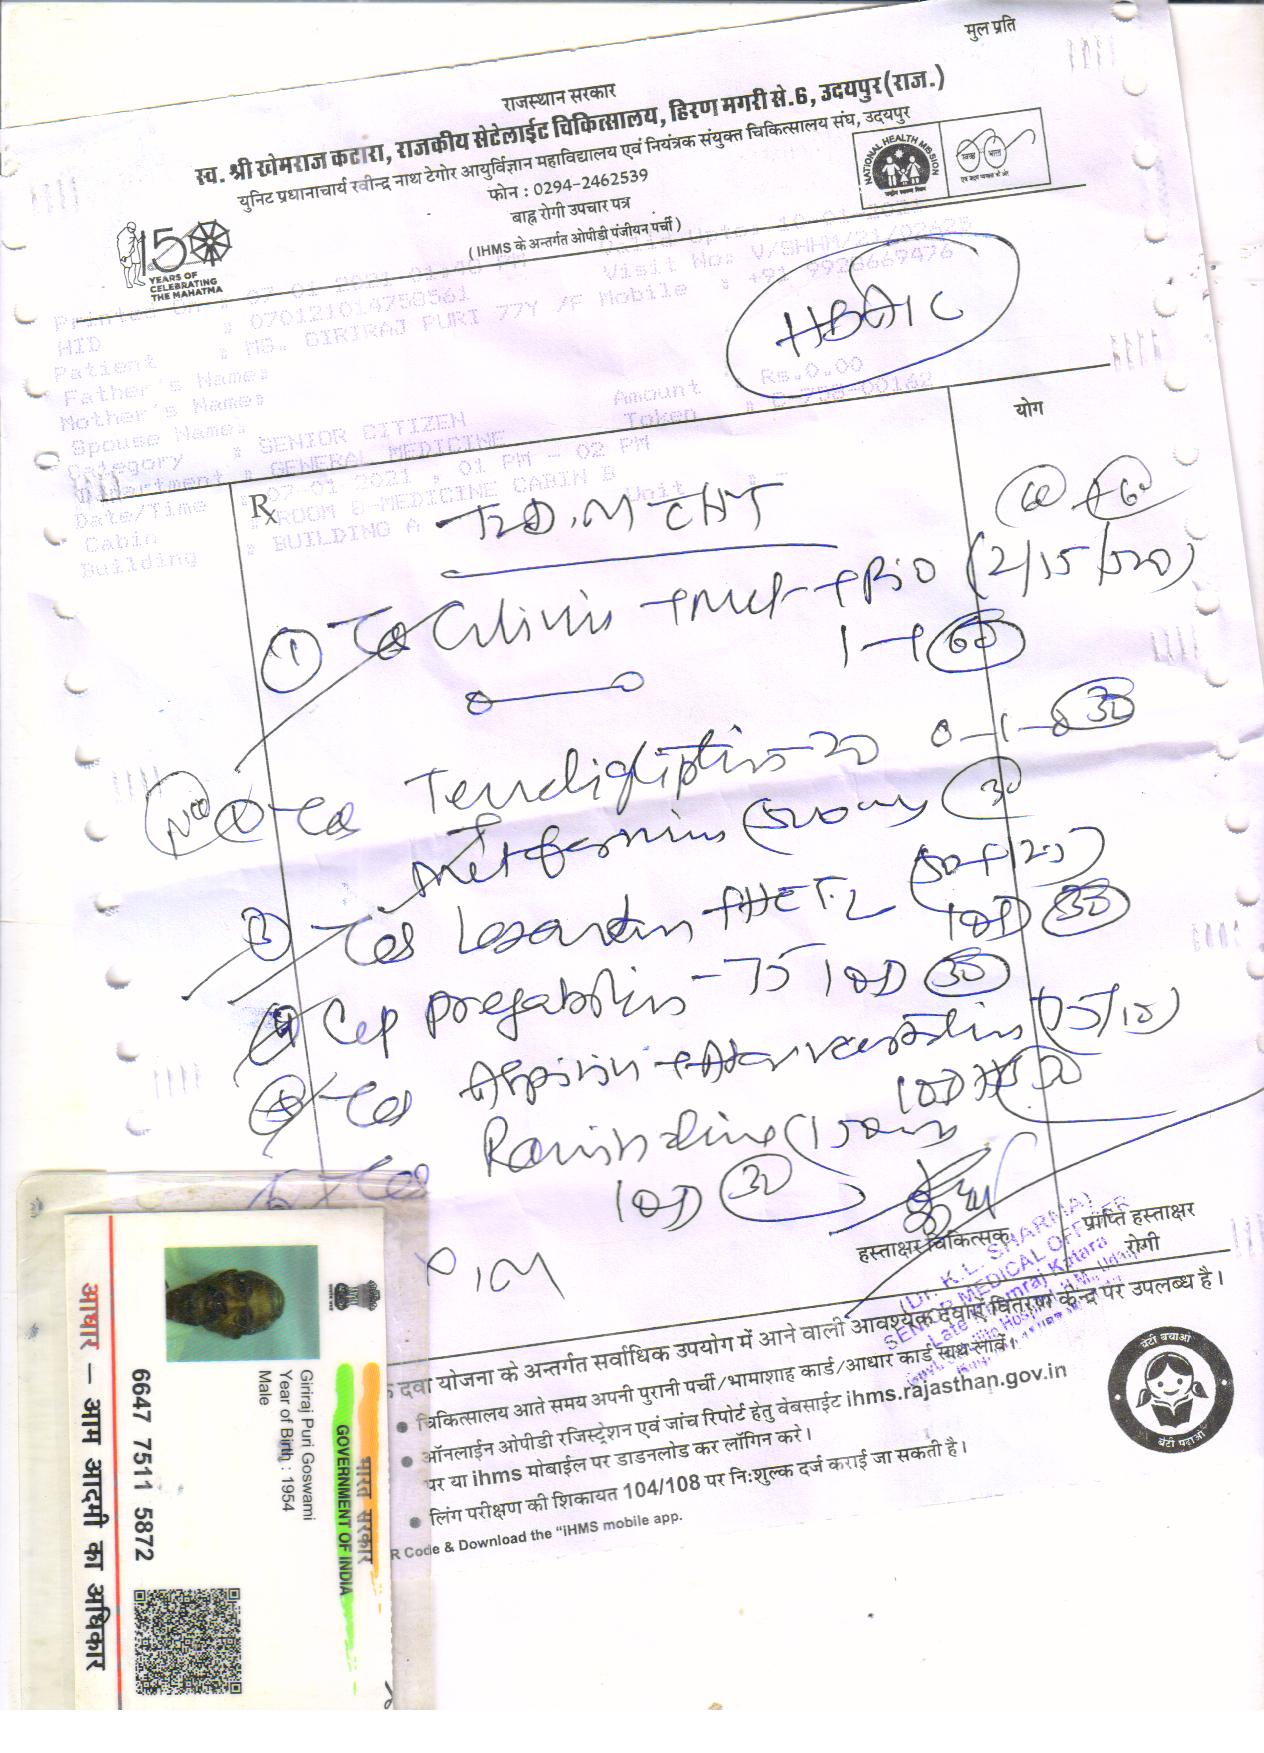 मुल प्रति
राजस्थान सरकार
स्व. श्री खेमराज कटारा, राजकीय सेटेलाईट चिकित्सालय, हिरण मगरी से.6, उदयपुर(राज.)
युनिट प्रधानाचार्य रवीन्द्र नाथ टेगोर आयुर्विज्ञान महाविद्यालय एवं नियंत्रक संयुक्त चिकित्सालय संघ, उदयपुर
फोन : 0294-2462539
बाह्य रोगी उपचार पत्र
( IHMS के अन्तर्गत ओपीडी पंजीयन पर्ची )
NATIONAL HEALTH MISSION
150
YEARS OF
CELEBRATING
THE MAHATMA
Printed On : 07-01-2021 01:46 PM Valid Upto:
HID : 070121014758561 Visit No: V/SHHM/21/02625
Patient : MS. GIRIRAJ PURI 77Y /F Mobile : +91 9928669476
Father's Name:
Mother's Name:
Spouse Name: Amount : Rs.0.00
Category : SENIOR CITIZEN Token
Department : GENERAL MEDICINE
Date/Time : 07-01-2021 , 01 PM - 02 PM
Cabin : ROOM 6-MEDICINE CABIN B Unit : -
Building : BUILDING A
HBA1C
योग
Rx
T2D.M HT
1 (2/15/500)
1-1 60
Teneligliptin-20 0-1-0 30
Metformin (500mg) 30
3 Losartan (50+12.5)
1OD 30
Cap pregabalin -75 1OD 30
Aspirin + Atorvastatin (75/10)
1OD
Ranitidine (150mg)
1OD 30
हस्ताक्षर चिकित्सक
प्राप्ति हस्ताक्षर
रोगी
(Dr. K.L. SHARMA)
SENIOR MEDICAL OFFICER
Late Khemraj Katara
दवा योजना के अन्तर्गत सर्वाधिक उपयोग में आने वाली आवश्यक दवाऐं वितरण केन्द्र पर उपलब्ध है।
● चिकित्सालय आते समय अपनी पुरानी पर्ची/भामाशाह कार्ड/आधार कार्ड साथ लावें।
● ऑनलाईन ओपीडी रजिस्ट्रेशन एवं जांच रिपोर्ट हेतु वेबसाईट ihms.rajasthan.gov.in
पर या ihms मोबाईल पर डाडनलोड कर लॉगिन करे।
● लिंग परीक्षण की शिकायत 104/108 पर नि:शुल्क दर्ज कराई जा सकती है।
R Code & Download the "IHMS mobile app.
बेटी बचाओ
बेटी पढ़ाओ
भारत सरकार
GOVERNMENT OF INDIA
Giriraj Puri Goswami
Year of Birth : 1954
Male
6647 7511 5872
आधार – आम आदमी का अधिकार